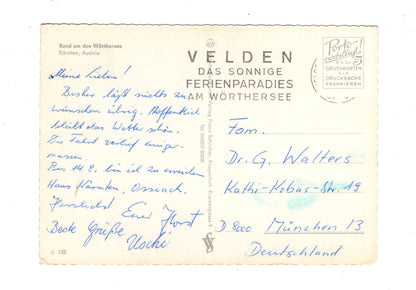 Rund um den Wörthersee
Kärnten, Austria
Meine Lieben!
Bisher läßt nichts zu
wünschen übrig. Hoffentlich
bleibt das Wetter schön.
Die Fahrt verlief einiger-
massen.
Bis 14. 9. bin ich zu erreichen
Haus Kärnten, Ossiach.
Herzlichst Euer Horst
Beste Grüße Uschi
C 135
VELDEN
DAS SONNIGE
FERIENPARADIES
AM WÖRTHERSEE
GRUSSWORTEN
ALS
DRUCKSACHE
FRANKIEREN
Fam.
Dr. G. Walters
Kathi-Kobus-Str. 19
D 8000 München 13
Deutschland